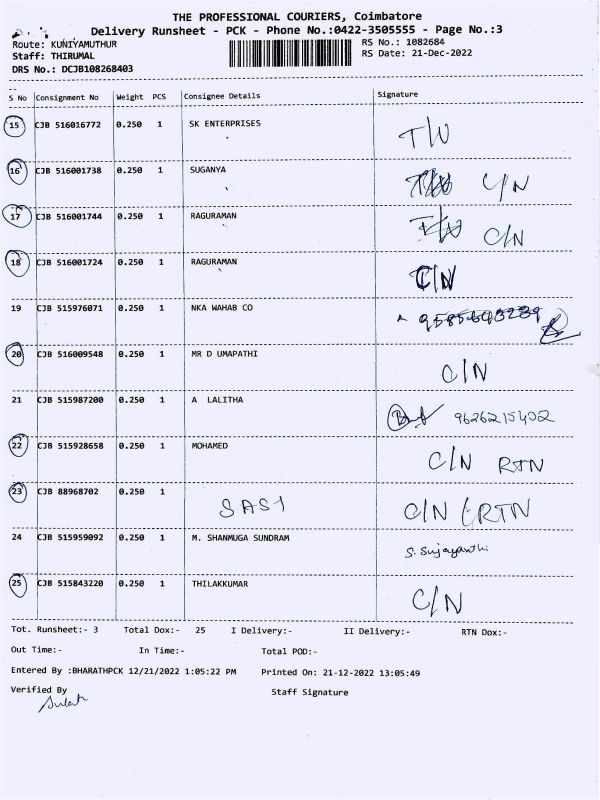 THE PROFESSIONAL COURIERS, Coimbatore
Delivery Runsheet - PCK - Phone No.:0422-3505555 - Page No.:3
Route: KUNIYAMUTHUR RS No.: 1082684
Staff: THIRUMAL RS Date: 21-Dec-2022
DRS No.: DCJB108268403
S No Consignment No Weight PCS Consignee Details Signature
15 CJB 516016772 0.250 1 SK ENTERPRISES
16 CJB 516001738 0.250 1 SUGANYA C/N
17 CJB 516001744 0.250 1 RAGURAMAN C/N
18 CJB 516001724 0.250 1 RAGURAMAN C/N
19 CJB 515976071 0.250 1 NKA WAHAB CO
20 CJB 516009548 0.250 1 MR D UMAPATHI C/N
21 CJB 515987200 0.250 1 A LALITHA 9626215402
22 CJB 515928658 0.250 1 MOHAMED C/N RTN
23 CJB 88968702 0.250 1 SASI C/N RTN
24 CJB 515959092 0.250 1 M. SHANMUGA SUNDRAM S. Sujayanthi
25 CJB 515843220 0.250 1 THILAKKUMAR C/N
Tot. Runsheet:- 3 Total Dox:- 25 I Delivery:- II Delivery:- RTN Dox:-
Out Time:- In Time:- Total POD:-
Entered By :BHARATHPCK 12/21/2022 1:05:22 PM Printed On: 21-12-2022 13:05:49
Verified By Staff Signature